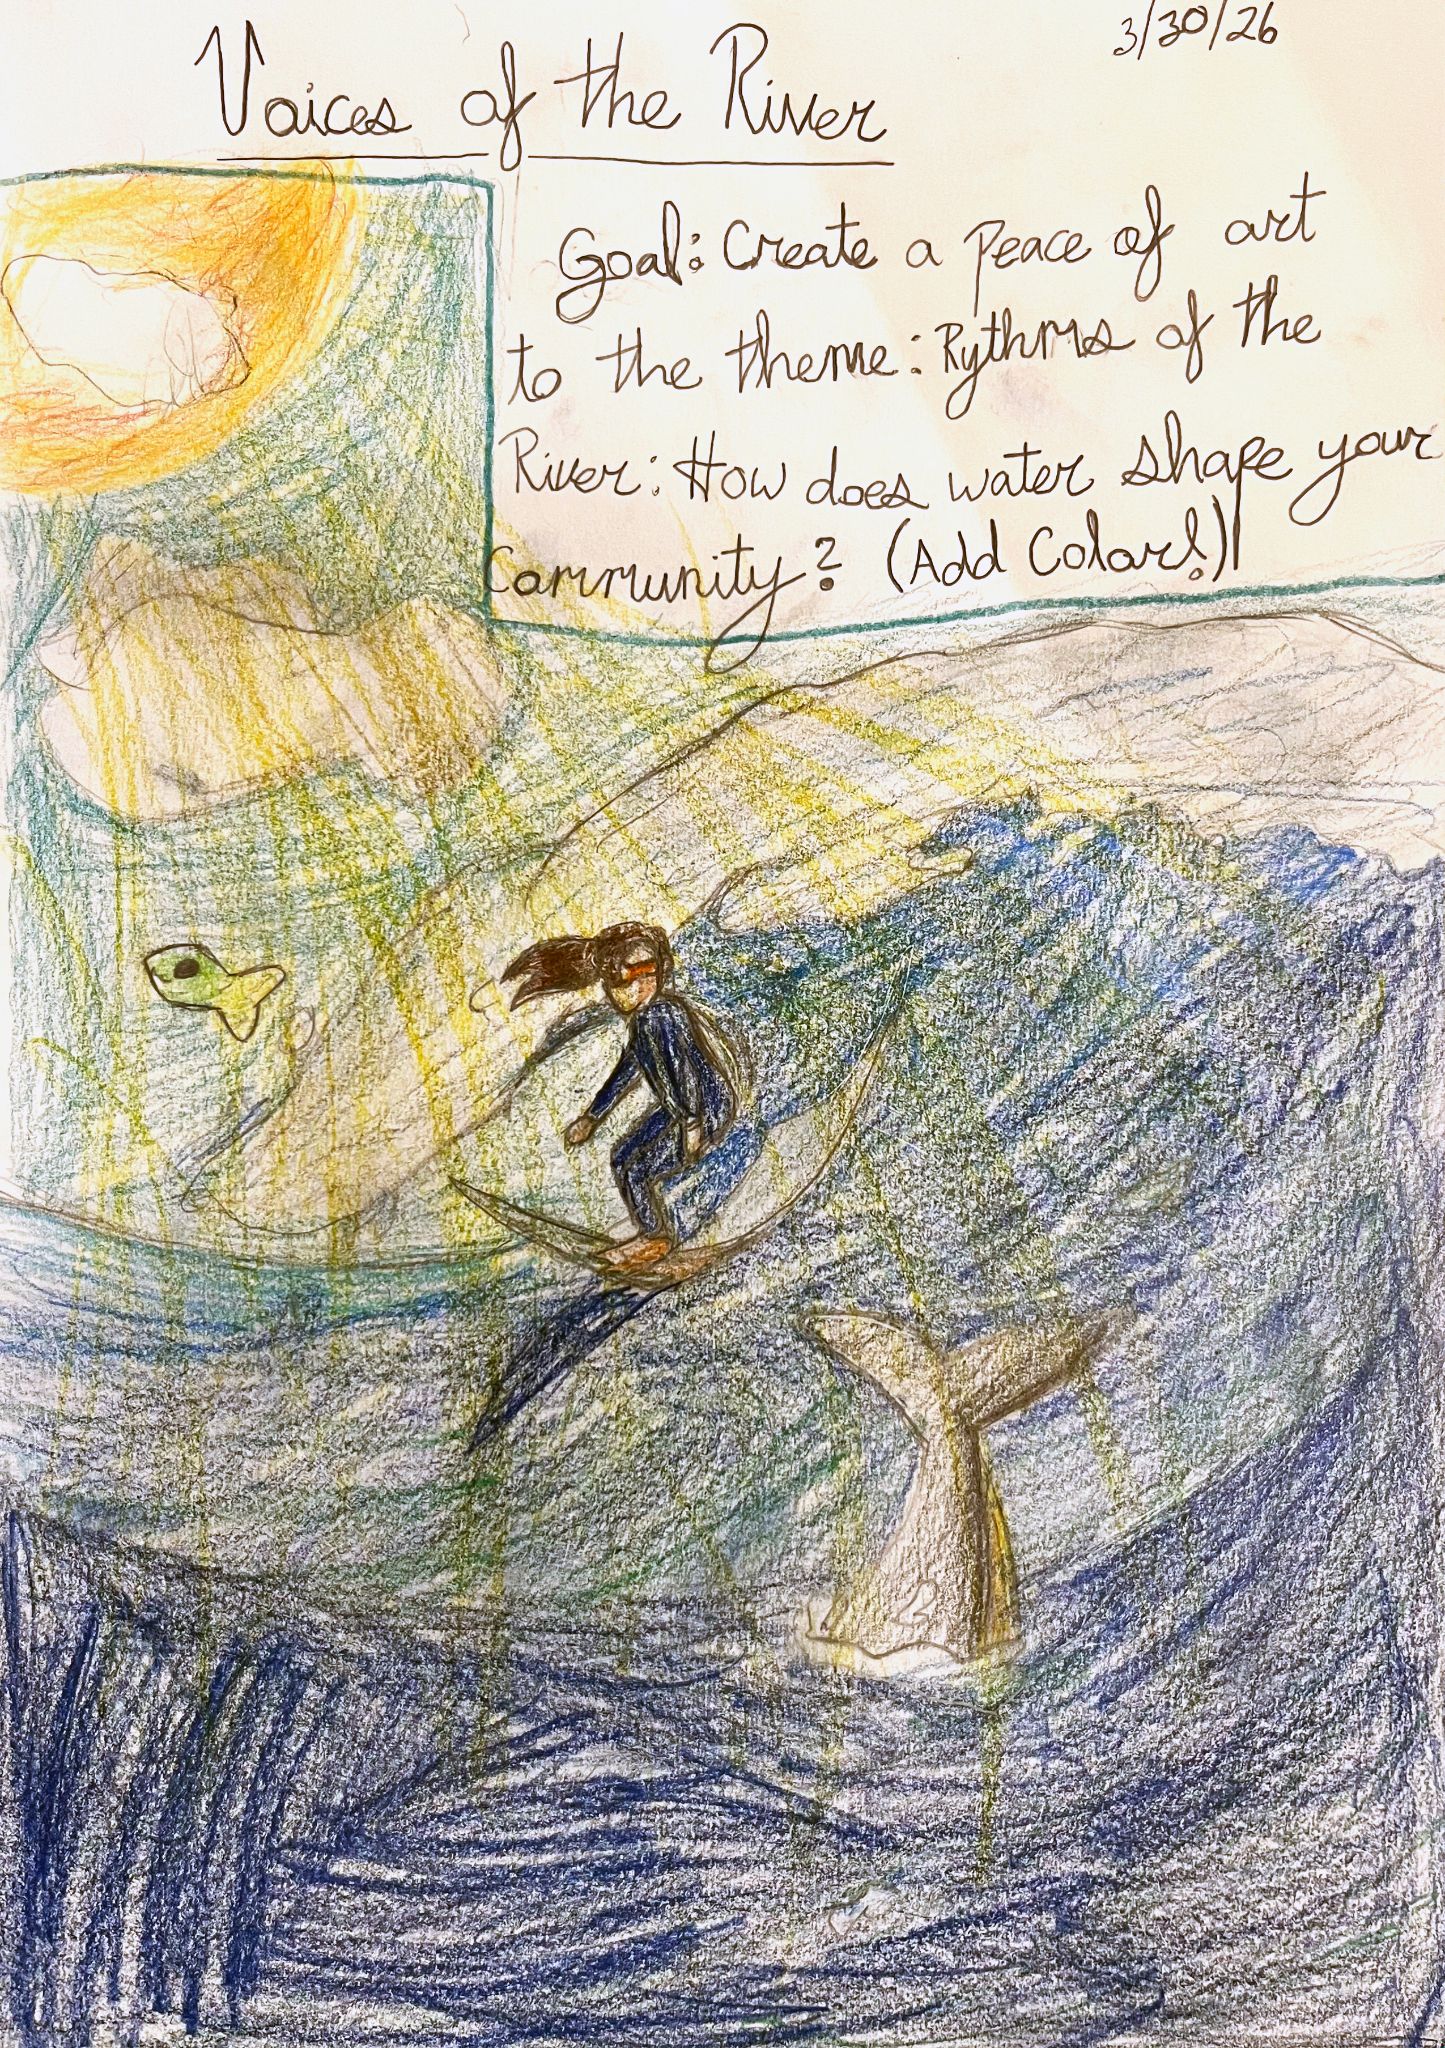 3/30/26
Voices of the River
Goal: Create a peace of art
to the theme: Rythms of the
River: How does water shape your
Community? (Add Color!)